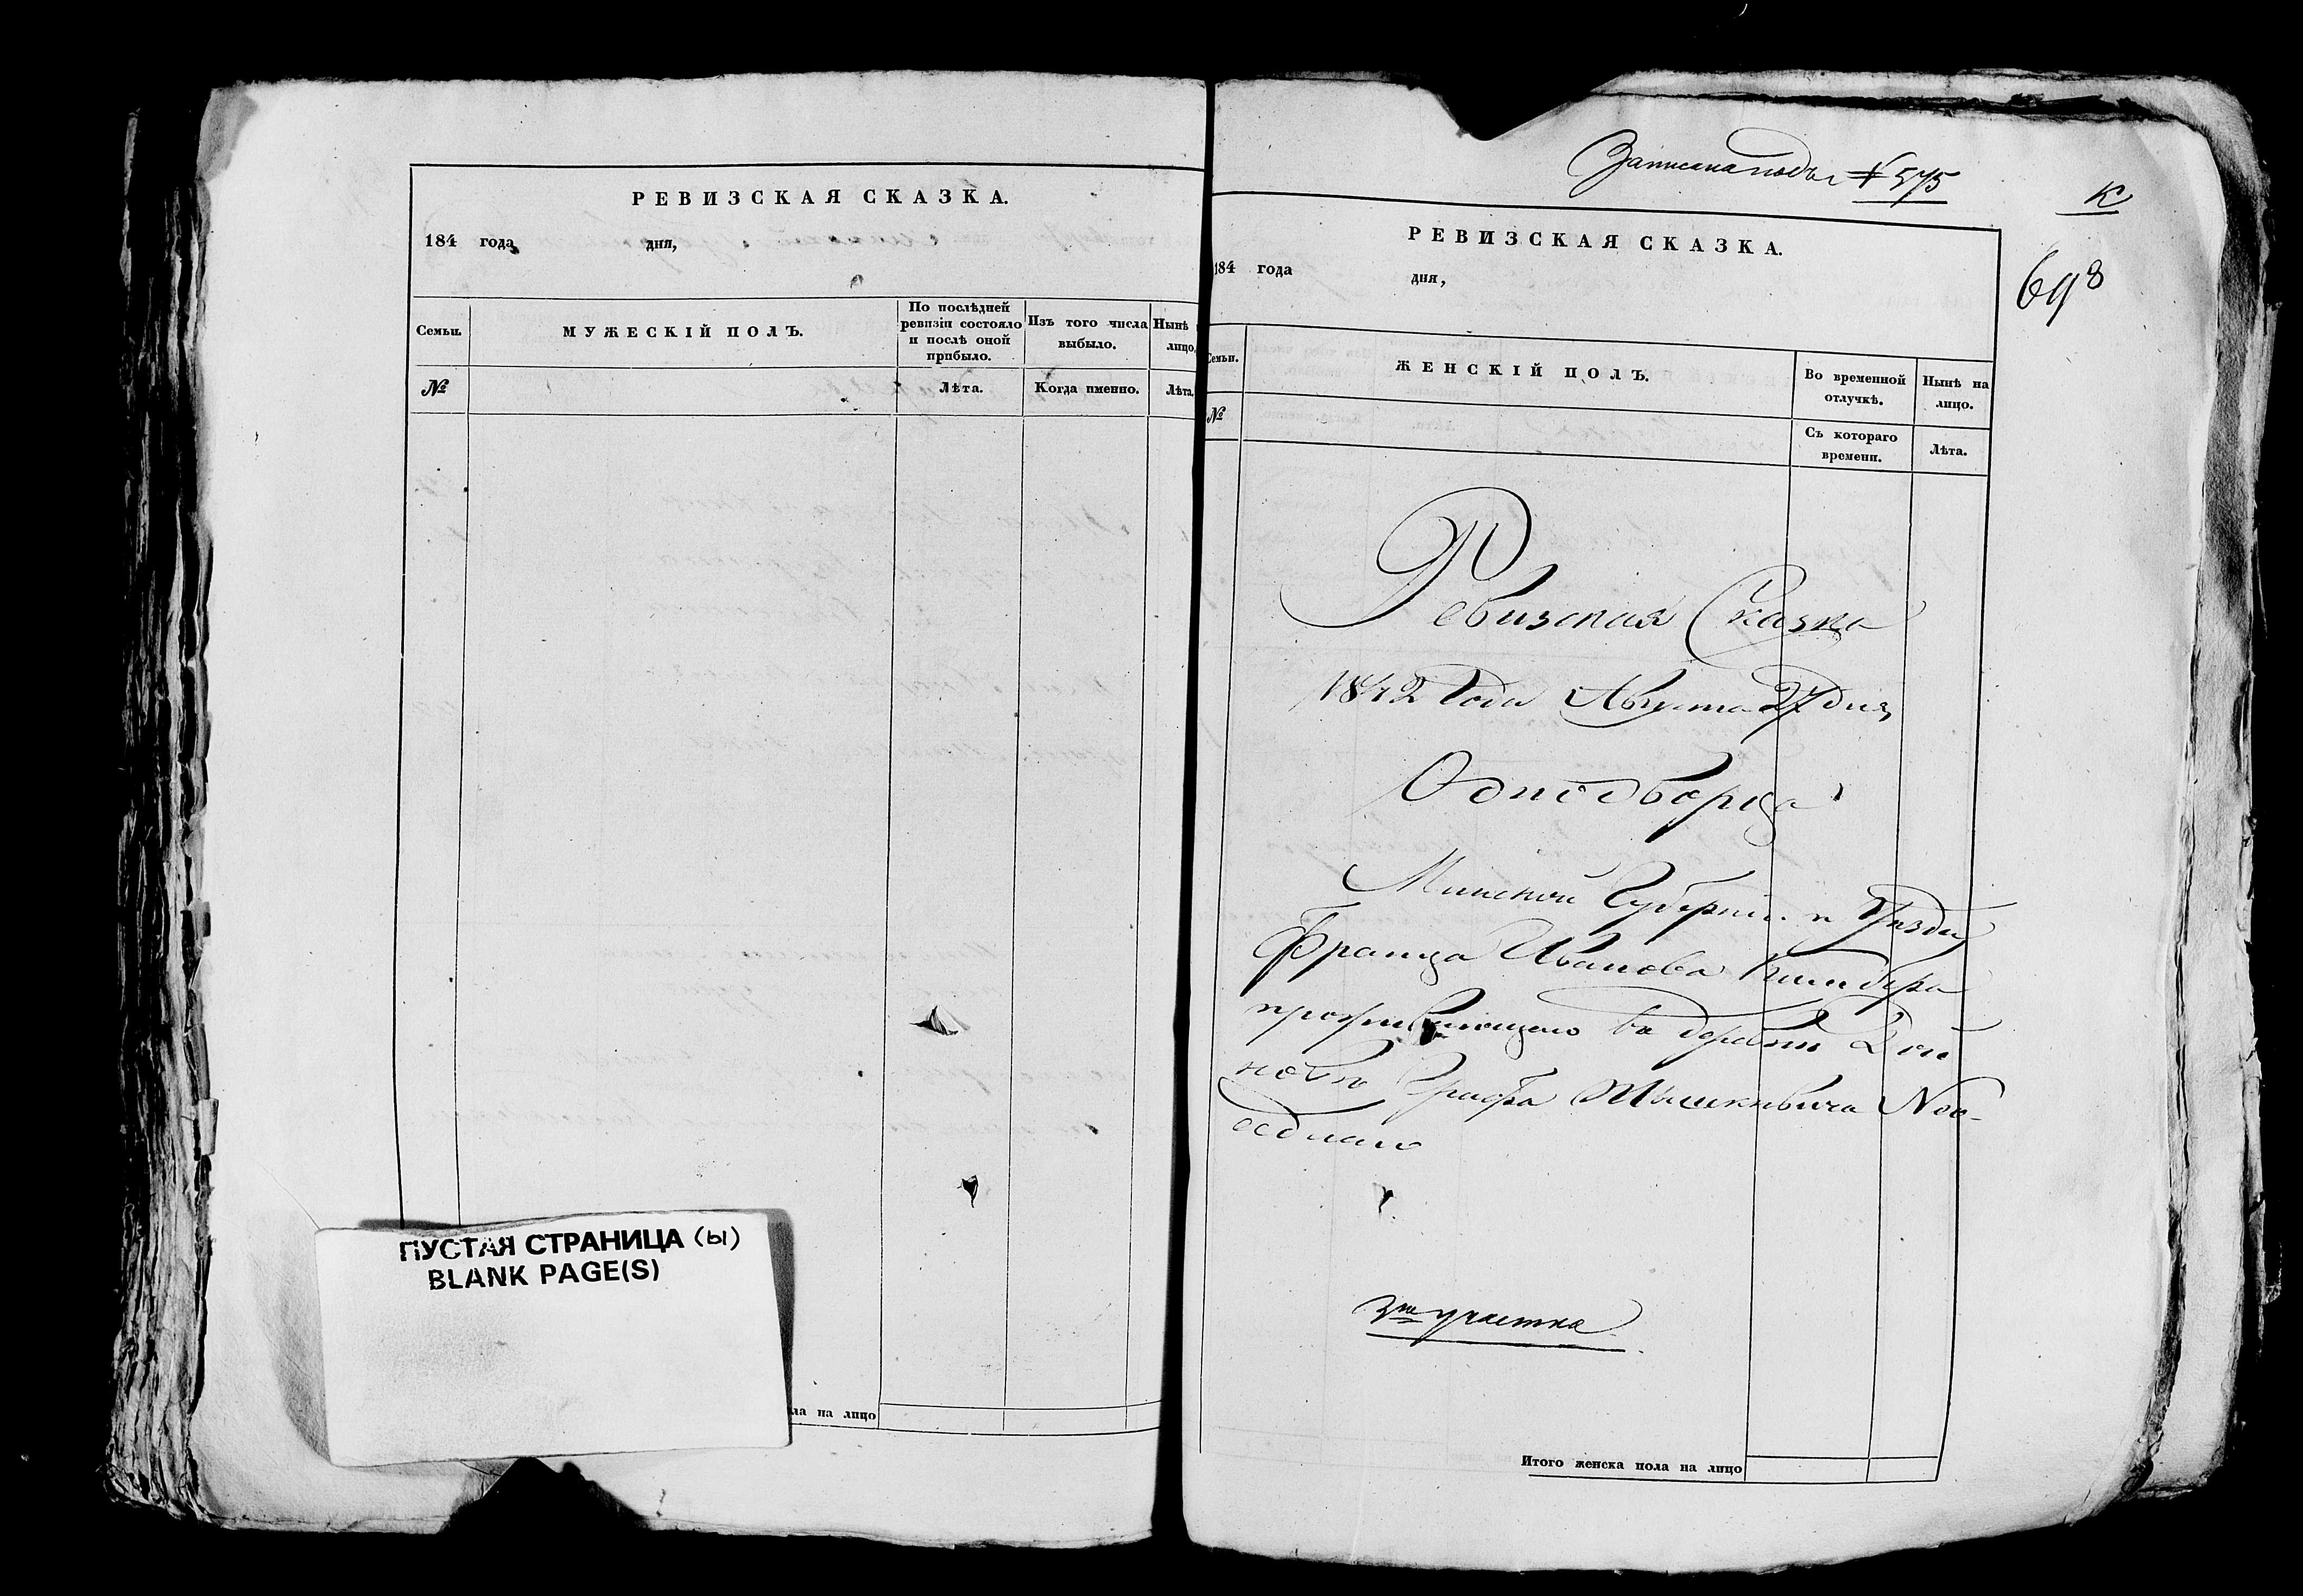 РЕВИЗСКАЯ СКАЗКА.
184 года дня,
Семьи. МУЖЕСКІЙ ПОЛЪ. По послѣдней ревизіи состояло и послѣ оной прибыло. Изъ того числа выбыло. Нынѣ лицо,
№ Лѣта. Когда именно. Лѣта,
ПУСТАЯ СТРАНИЦА (ы)
BLANK PAGE(S)
ла на лицо
Записана подъ № 575
К
698
РЕВИЗСКАЯ СКАЗКА.
184 года дня,
Семьи. ЖЕНСКІЙ ПОЛЪ. Во временной отлучкѣ. Нынѣ на лицо.
№ Съ котораго времени. Лѣта.
Ревизская Сказка
1842 Года Августа 27 дня,
Однодворца
Минской Губерніи и Уѣзда
Франца Иванова
проживающаго въ деревни
Графа Тышкѣвича Нео-
сѣдлаго
3го участка
Итого женска пола на лицо